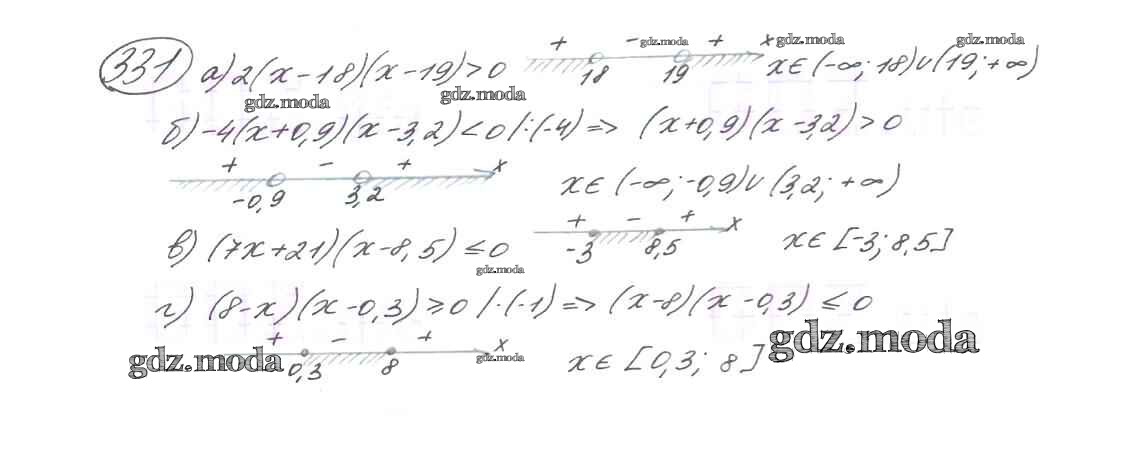 331 а) 2(x-18)(x-19)>0 + - + x x∈(-∞; 18)∪(19; +∞)
18 19
gdz.moda gdz.moda gdz.moda gdz.moda gdz.moda
б) -4(x+0,9)(x-3,2)<0 /:(-4) => (x+0,9)(x-3,2)>0
+ - + x
-0,9 3,2 x∈(-∞; -0,9)∪(3,2; +∞)
в) (7x+21)(x-8,5)≤0 + - + x x∈[-3; 8,5]
-3 8,5
gdz.moda
г) (8-x)(x-0,3)≥0 /·(-1) => (x-8)(x-0,3)≤0
+ - + x gdz.moda
gdz.moda 0,3 8 gdz.moda x∈[0,3; 8]